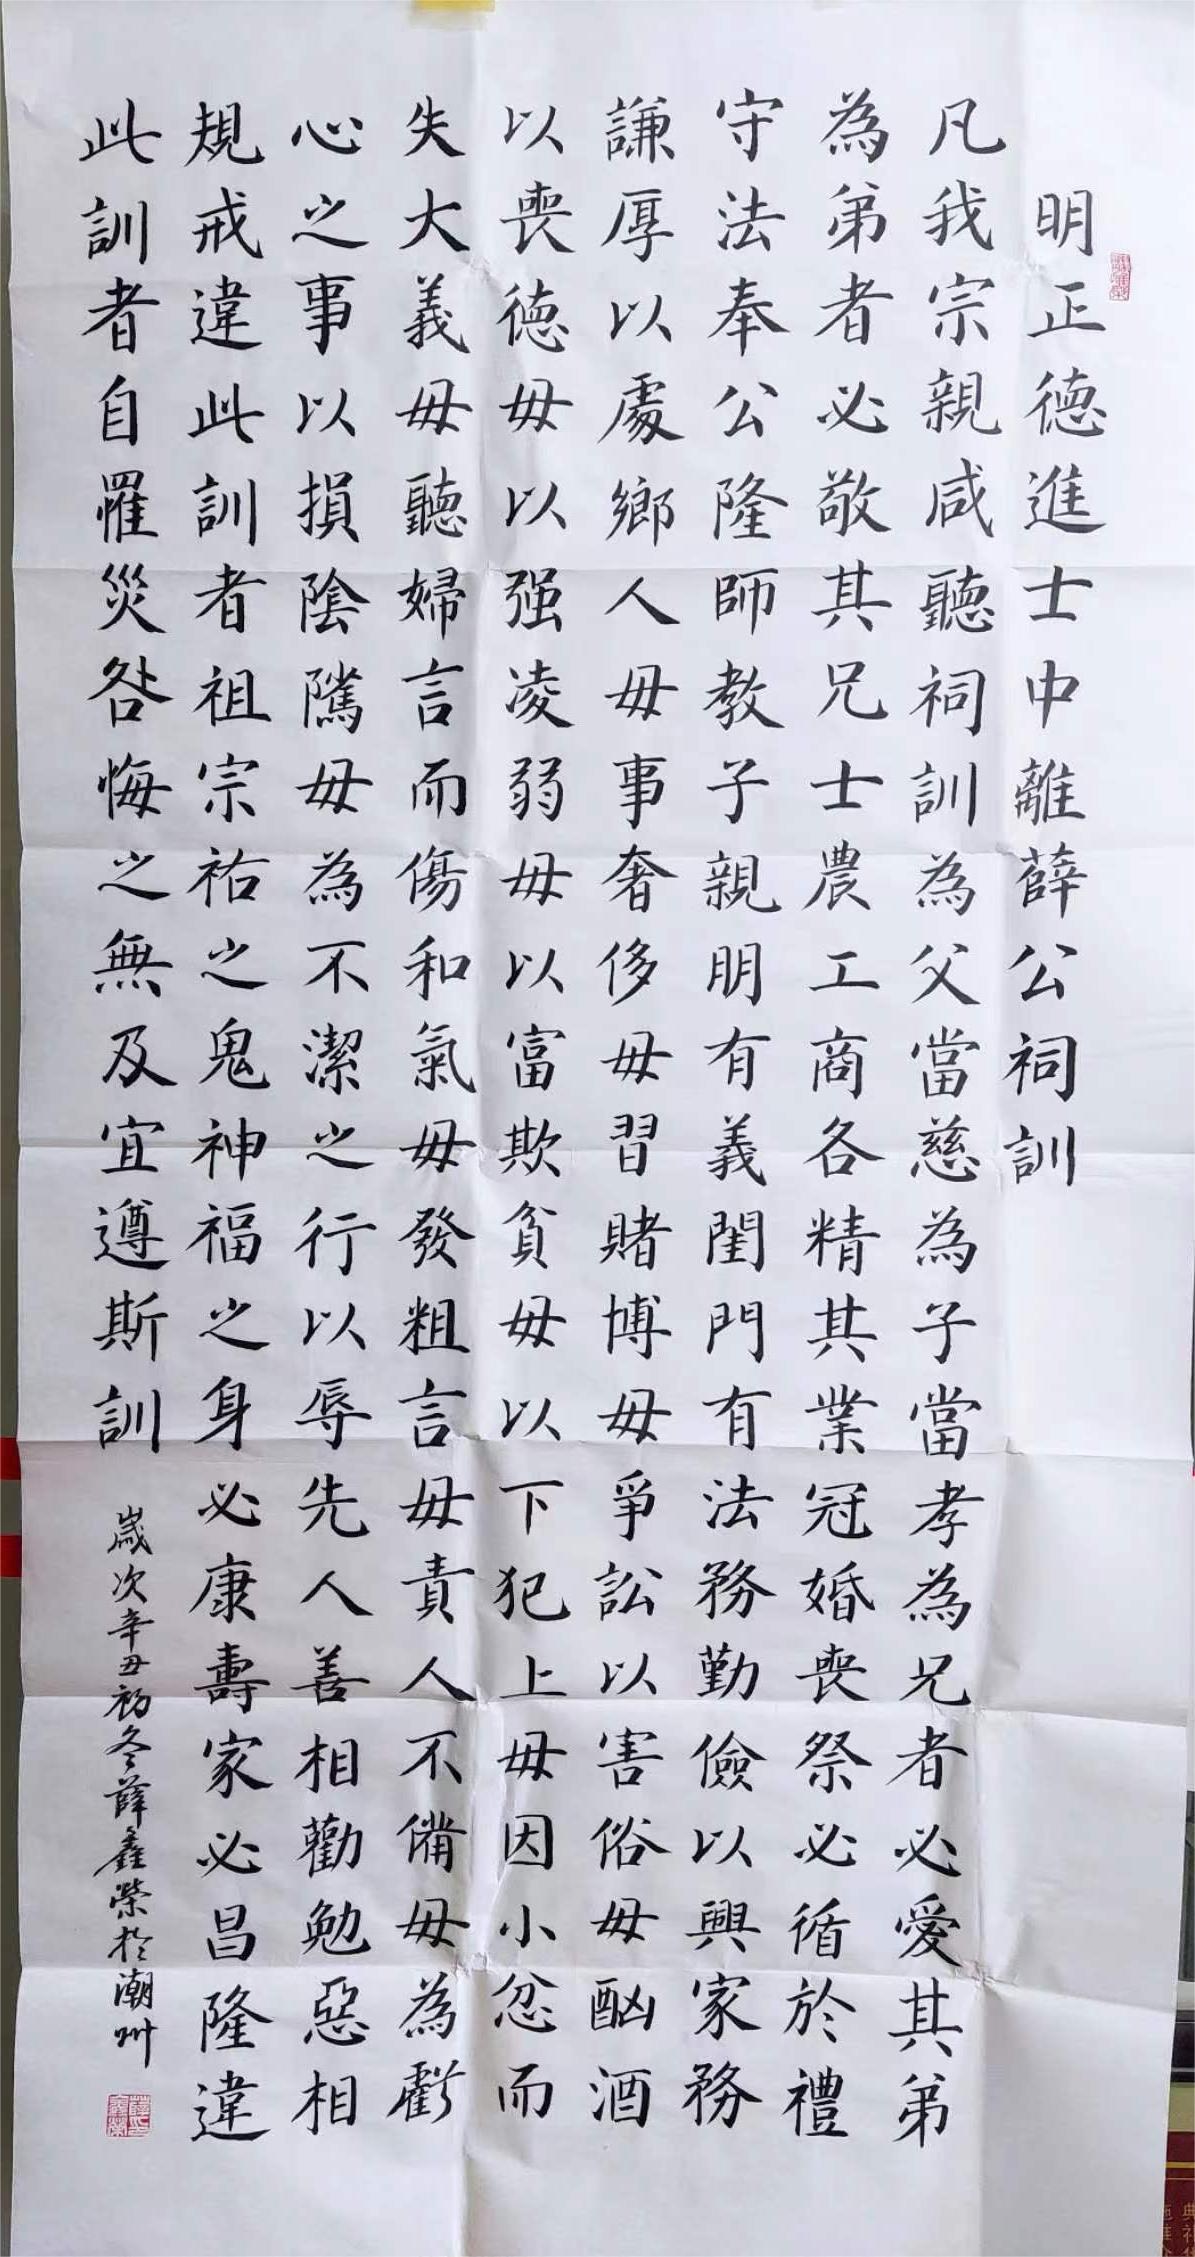 明正德進士中離薛公祠訓
凡我宗親咸聽祠訓為父當慈為子當孝為兄者必愛其弟
為弟者必敬其兄士農工商各精其業冠婚喪祭必循於禮
守法奉公隆師教子親朋有義閨門有法務勤儉以興家務
謙厚以處鄉人毋事奢侈毋習賭博毋爭訟以害俗毋酗酒
以喪德毋以强凌弱毋以富欺貧毋以下犯上毋因小忿而
失大義毋聽婦言而傷和氣毋發粗言毋責人不備毋為虧
心之事以損陰騭毋為不潔之行以辱先人善相勸勉惡相
規戒違此訓者祖宗祐之鬼神福之身必康壽家必昌隆違
此訓者自罹災咎悔之無及宜遵斯訓
歲次辛丑初冬薛鑫榮於潮州